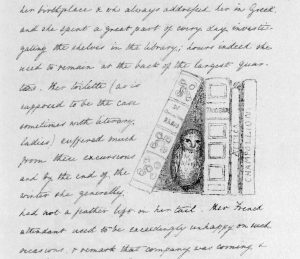 her birthplace & who always addressed her in Greek
and she spent a great part of every day investi-
gating the shelves in the library, hours indeed she
used to remain at the back of the largest quar-
tos. Her toilette (as is
supposed to be the case
sometimes with literary
ladies) suffered much
from these excursions
and by the end of the
winter she generally
had not a feather left on her tail. Her French
attendant used to be exceedingly unhappy on such
occasions, & remark that company was coming, &
CHAMPOLLION